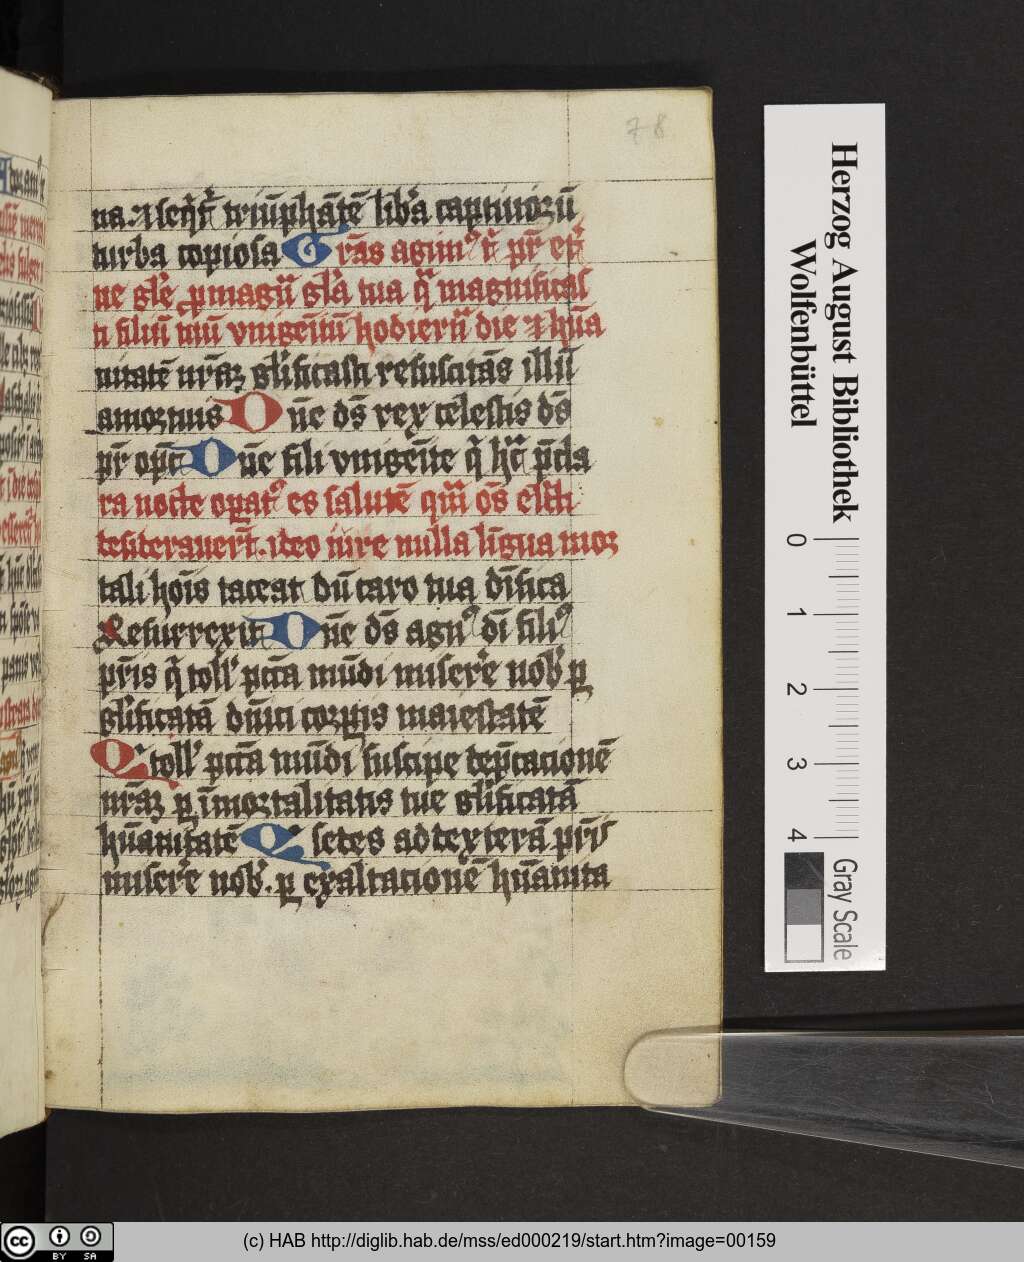 78
na ⁊ seq̄t̄ triūphātē lib'a captiuoꝝū
turba copiosa Grās agim⁹ t̄ pr̄ et̄
ne gl'e ꝓ magn̄ gl'a tua q̄ magnificas
ti filiū tuū vnigeītū hodiern̄ die ⁊ hūa
nitatē nr̄aꝫ gl'ificasti resuscitās illū
a mortuis Dn̄e ds̄ rex celestis ds̄
pr̄ op̄c Dn̄e fili vnigeīte q̄ hc̄ p̄cla
ra nocte opat⁹ es salutē qm̄ os̄ elc̄ti
desiderauer̄t. ideo iūre nulla līgua mor
tali hoīs taceat dū caro tua dīfica
Resurrexit Dn̄e ds̄ agn⁹ dī fili⁹
pr̄is q̄ toll' pctā mūdi miser'e nob' ꝑ
gl'ificatā dnīci corꝑis maiestatē
Q toll' pctā mūdi suscipe dep̄cationē
nr̄aꝫ ꝑ īmortalitatis tue gl'ificatā
hūanitatē Q sedes ad dexterā pr̄is
miser'e nob'. ꝑ exaltationē hūanita
Herzog August Bibliothek
Wolfenbüttel
0 1 2 3 4
Gray Scale
cc BY SA
(c) HAB http://diglib.hab.de/mss/ed000219/start.htm?image=00159